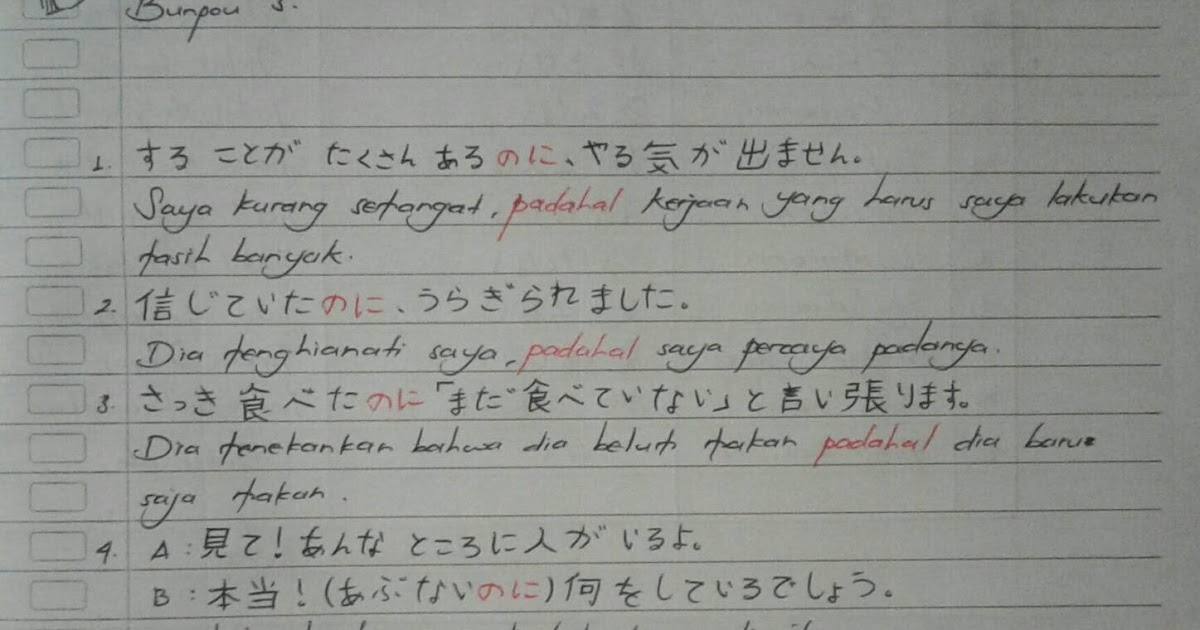 Bunpou 3.
1. する ことが たくさん あるのに、やる気が出ません。
Saya kurang semangat, padahal kerjaan yang harus saya lakukan
masih banyak.
2. 信じていたのに、うらぎられました。
Dia menghianati saya, padahal saya percaya padanya.
3. さっき 食べたのに「まだ食べていない」と言い張ります。
Dia menekankan bahwa dia belum makan padahal dia baru
saja makan.
4. A : 見て!あんな ところに人がいるよ。
B : 本当!(あぶないのに)何をしているでしょう。